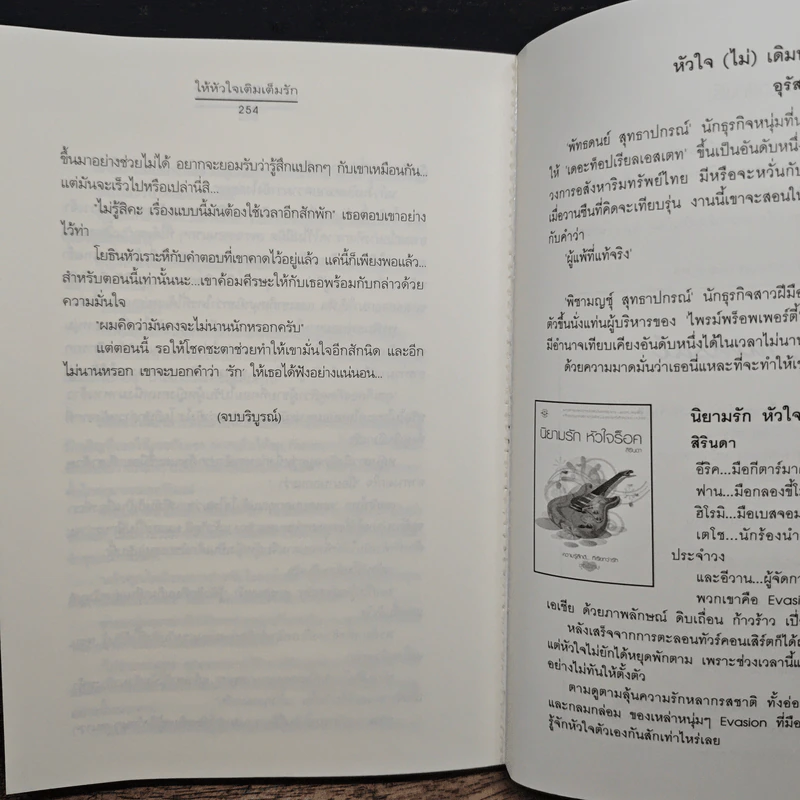 ให้หัวใจเติมเต็มรัก
254
ขึ้นมาอย่างช่วยไม่ได้ อยากจะยอมรับว่ารู้สึกแปลกๆ กับเขาเหมือนกัน...
แต่มันจะเร็วไปหรือเปล่านี่สิ...
"ไม่รู้สิคะ เรื่องแบบนี้มันต้องใช้เวลาอีกสักพัก" เธอตอบเขาอย่าง
ไว้ท่า
โยธินหัวเราะหึกับคำตอบที่เขาคาดไว้อยู่แล้ว แค่นี้ก็เพียงพอแล้ว...
สำหรับตอนนี้เท่านั้นนะ...เขาค้อมศีรษะให้กับเธอพร้อมกับกล่าวด้วย
ความมั่นใจ
"ผมคิดว่ามันคงจะไม่นานนักหรอกครับ"
แต่ตอนนี้ รอให้โชคชะตาช่วยทำให้เขามั่นใจอีกสักนิด และอีก
ไม่นานหรอก เขาจะบอกคำว่า 'รัก' ให้เธอได้ฟังอย่างแน่นอน...
(จบบริบูรณ์)
หัวใจ (ไม่) เดิม
อุรัส
'พัทธดนย์ สุทธาปกรณ์' นักธุรกิจหนุ่มที่
ให้ 'เดอะท็อปเรียลเอสเตท' ขึ้นเป็นอันดับหนึ่ง
วงการอสังหาริมทรัพย์ไทย มีหรือจะหวั่นกับ
เมื่อวานซืนที่คิดจะเทียบรุ่น งานนี้เขาจะสอนให้
กับคำว่า
'ผู้แพ้ที่แท้จริง'
'พิชามญชุ์ สุทธาปกรณ์' นักธุรกิจสาวฝีมือ
ตัวขึ้นนั่งแท่นผู้บริหารของ 'ไพรม์พร็อพเพอร์ตี้'
มีอำนาจเทียบเคียงอันดับหนึ่งได้ในเวลาไม่นาน
ด้วยความมาดมั่นว่าเธอนี่แหละที่จะทำให้เ
นิยามรัก หัวใจร็อค
สิรินดา
นิยามรัก หัวใจ
สิรินดา
อีริค...มือกีตาร์มา
ฟาน...มือกลองขี้โ
ฮิโรมิ...มือเบสจอม
เตโช...นักร้องนำ
ประจำวง
และอีวาน...ผู้จัดกา
พวกเขาคือ Evasi
เอเชีย ด้วยภาพลักษณ์ ดิบเถื่อน ก้าวร้าว เปี่
หลังเสร็จจากการตะลอนทัวร์คอนเสิร์ตก็ได้
แต่หัวใจไม่ยักได้หยุดพักตาม เพราะช่วงเวลานี้
อย่างไม่ทันให้ตั้งตัว
ตามดูตามลุ้นความรักหลากรสชาติ ทั้งอ่อ
และกลมกล่อม ของเหล่าหนุ่มๆ Evasion ที่มือ
รู้จักหัวใจตัวเองกันสักเท่าไหร่เลย